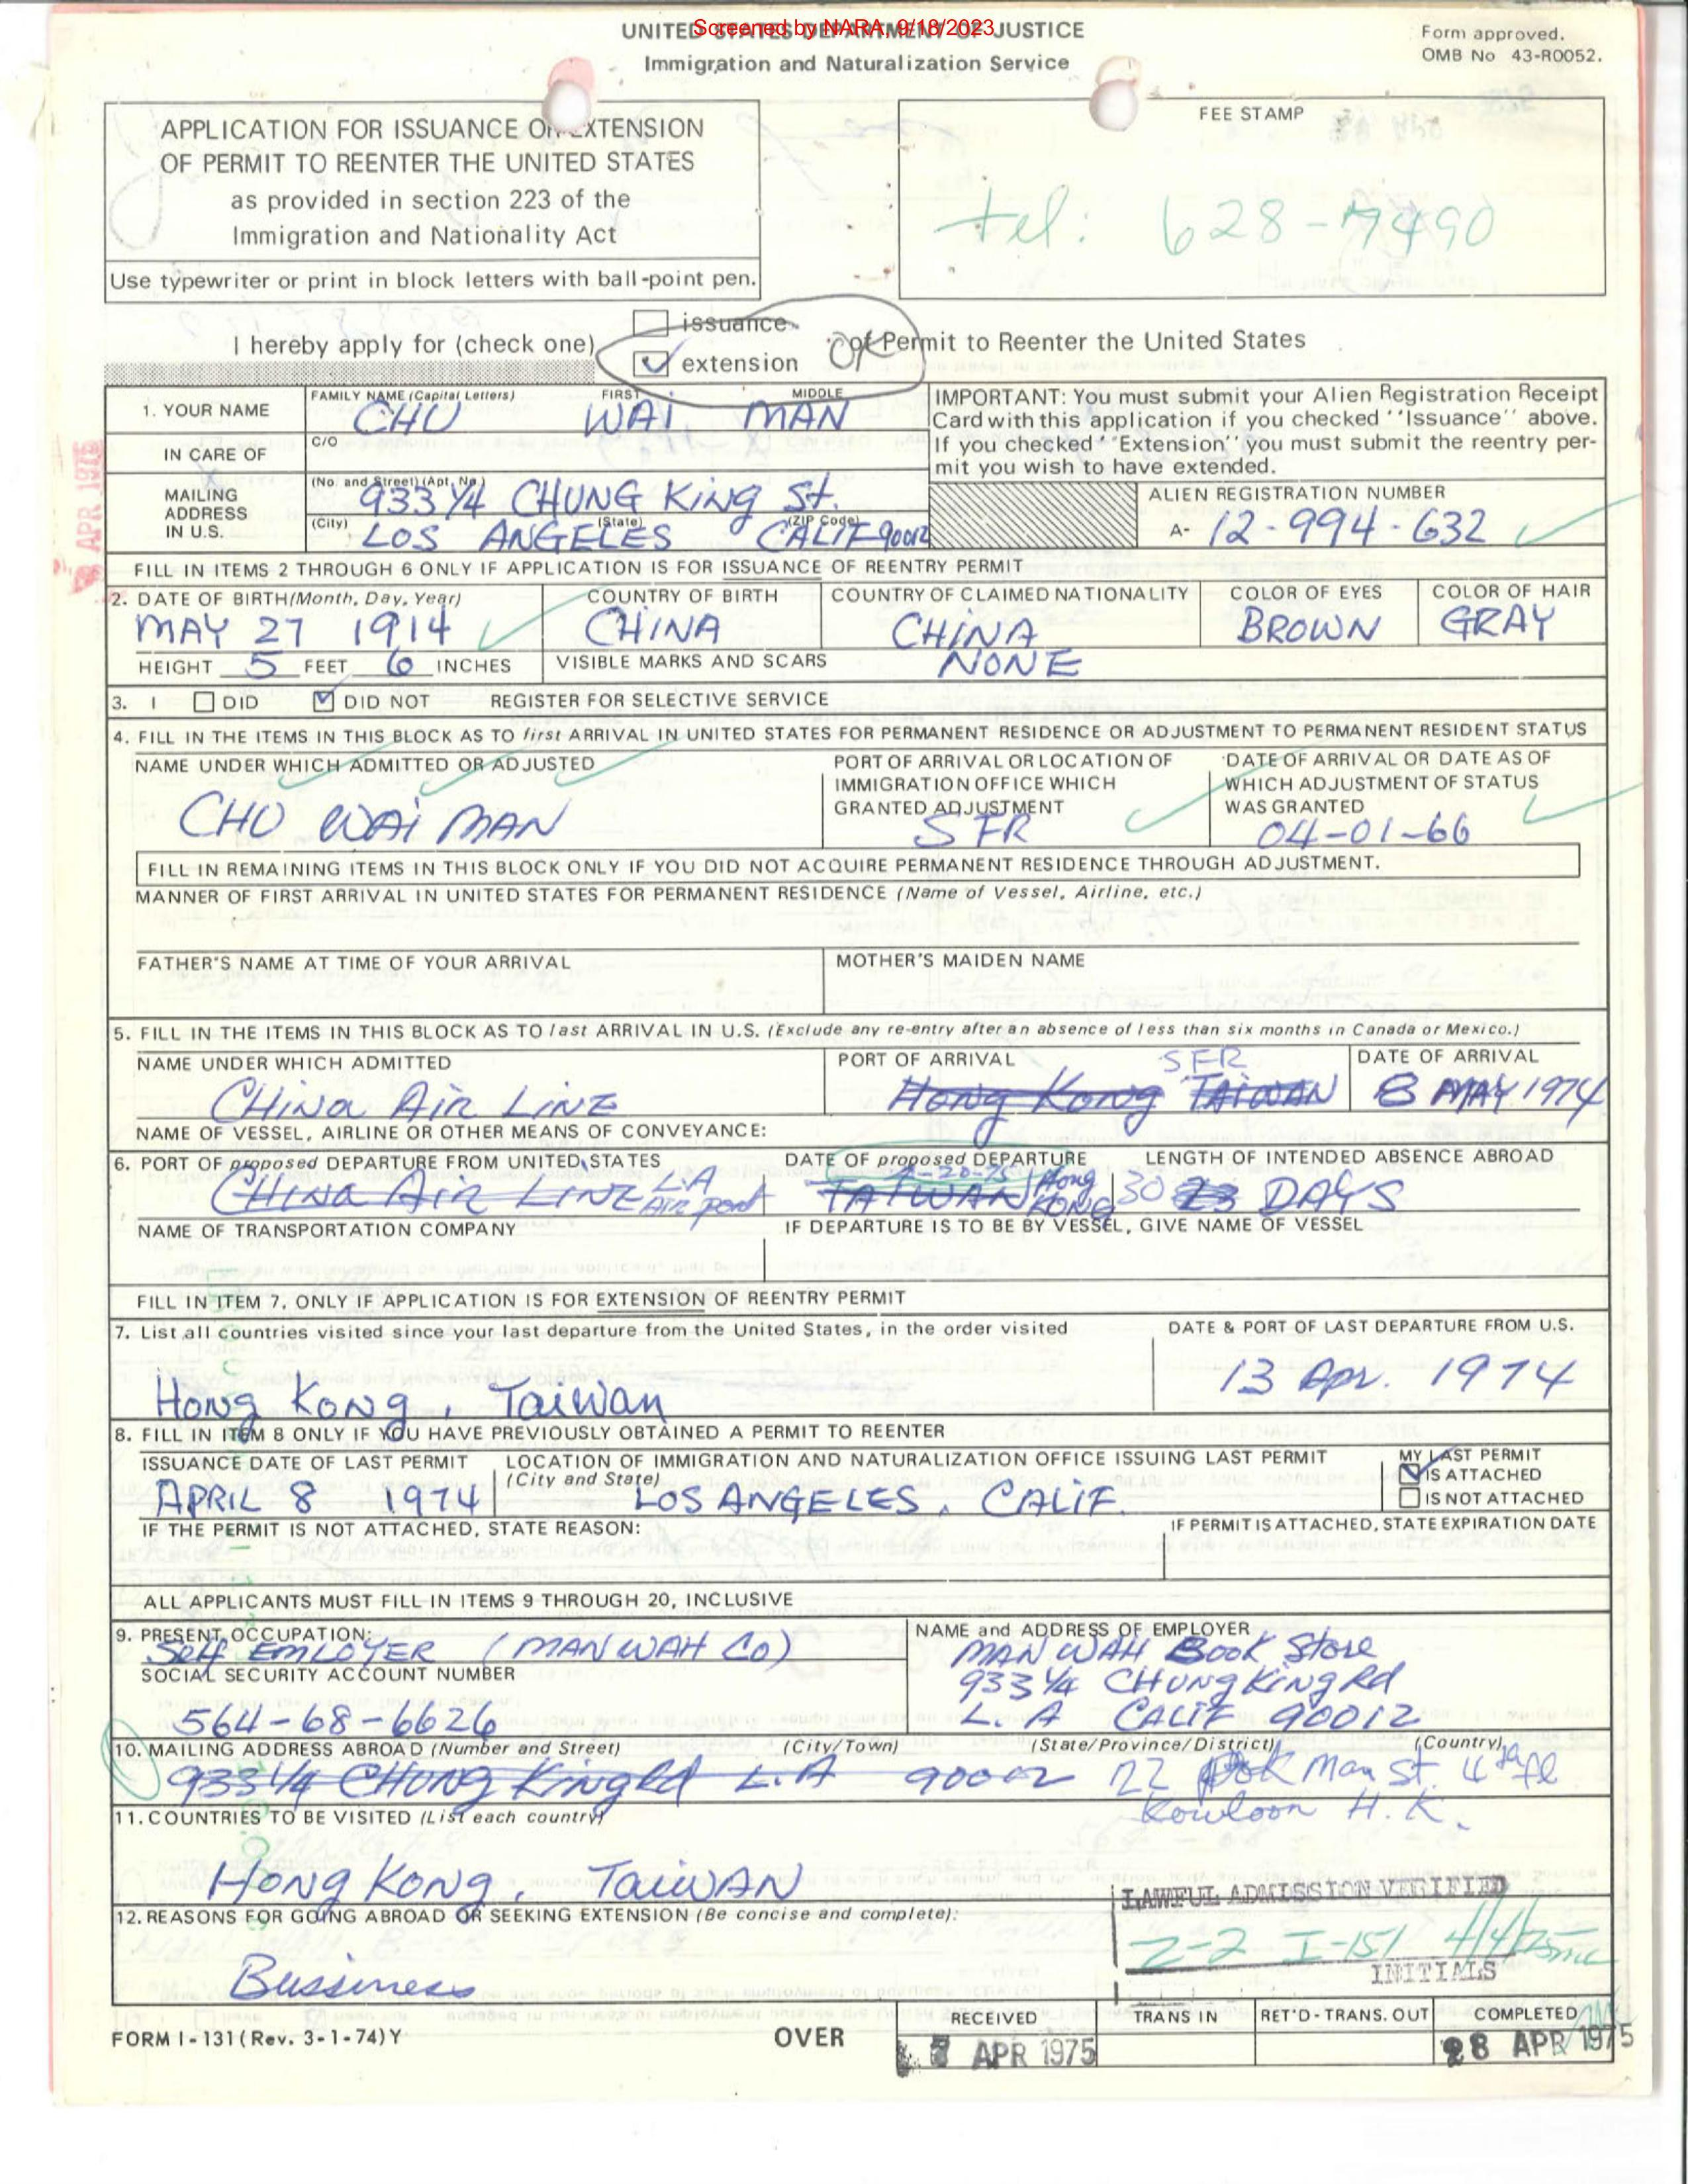 Screened by NARA, 9/18/2023
UNITED STATES DEPARTMENT OF JUSTICE
Immigration and Naturalization Service
Form approved.
OMB No 43-R0052.
APPLICATION FOR ISSUANCE OR EXTENSION
OF PERMIT TO REENTER THE UNITED STATES
as provided in section 223 of the
Immigration and Nationality Act
Use typewriter or print in block letters with ball-point pen.
FEE STAMP
tel: 628-7490
I hereby apply for (check one)
issuance
extension
of Permit to Reenter the United States
1. YOUR NAME
FAMILY NAME (Capital Letters) FIRST MIDDLE
CHU WAI MAN
IN CARE OF
C/O
MAILING ADDRESS IN U.S.
(No. and Street) (Apt. No.)
933 1/4 CHUNG KING St.
(City) (State) (ZIP Code)
LOS ANGELES CALIF 90012
IMPORTANT: You must submit your Alien Registration Receipt
Card with this application if you checked ''Issuance'' above.
If you checked ''Extension'' you must submit the reentry per-
mit you wish to have extended.
ALIEN REGISTRATION NUMBER
A- 12-994-632
APR 1975
FILL IN ITEMS 2 THROUGH 6 ONLY IF APPLICATION IS FOR ISSUANCE OF REENTRY PERMIT
2. DATE OF BIRTH (Month, Day, Year) COUNTRY OF BIRTH COUNTRY OF CLAIMED NATIONALITY COLOR OF EYES COLOR OF HAIR
MAY 27 1914 CHINA CHINA BROWN GRAY
HEIGHT 5 FEET 6 INCHES VISIBLE MARKS AND SCARS NONE
3. I DID DID NOT REGISTER FOR SELECTIVE SERVICE
4. FILL IN THE ITEMS IN THIS BLOCK AS TO first ARRIVAL IN UNITED STATES FOR PERMANENT RESIDENCE OR ADJUSTMENT TO PERMANENT RESIDENT STATUS
NAME UNDER WHICH ADMITTED OR ADJUSTED
CHU WAI MAN
PORT OF ARRIVAL OR LOCATION OF
IMMIGRATION OFFICE WHICH
GRANTED ADJUSTMENT
SFR
DATE OF ARRIVAL OR DATE AS OF
WHICH ADJUSTMENT OF STATUS
WAS GRANTED
04-01-66
FILL IN REMAINING ITEMS IN THIS BLOCK ONLY IF YOU DID NOT ACQUIRE PERMANENT RESIDENCE THROUGH ADJUSTMENT.
MANNER OF FIRST ARRIVAL IN UNITED STATES FOR PERMANENT RESIDENCE (Name of Vessel, Airline, etc.)
FATHER'S NAME AT TIME OF YOUR ARRIVAL MOTHER'S MAIDEN NAME
5. FILL IN THE ITEMS IN THIS BLOCK AS TO last ARRIVAL IN U.S. (Exclude any re-entry after an absence of less than six months in Canada or Mexico.)
NAME UNDER WHICH ADMITTED PORT OF ARRIVAL SFR DATE OF ARRIVAL
CHiNa AiR LiNE Hong Kong TAIWAN 8 MAY 1974
NAME OF VESSEL, AIRLINE OR OTHER MEANS OF CONVEYANCE:
6. PORT OF proposed DEPARTURE FROM UNITED STATES DATE OF proposed DEPARTURE LENGTH OF INTENDED ABSENCE ABROAD
CHiNa AiR LINE L.A AiR port TAIWAN 4-20-75 Hong KONG 30 23 DAYS
NAME OF TRANSPORTATION COMPANY IF DEPARTURE IS TO BE BY VESSEL, GIVE NAME OF VESSEL
FILL IN ITEM 7, ONLY IF APPLICATION IS FOR EXTENSION OF REENTRY PERMIT
7. List all countries visited since your last departure from the United States, in the order visited DATE & PORT OF LAST DEPARTURE FROM U.S.
Hong Kong, Taiwan 13 Apr. 1974
8. FILL IN ITEM 8 ONLY IF YOU HAVE PREVIOUSLY OBTAINED A PERMIT TO REENTER
ISSUANCE DATE OF LAST PERMIT
APRIL 8 1974
LOCATION OF IMMIGRATION AND NATURALIZATION OFFICE ISSUING LAST PERMIT
(City and State)
LOS ANGELES, CALIF.
MY LAST PERMIT
IS ATTACHED
IS NOT ATTACHED
IF THE PERMIT IS NOT ATTACHED, STATE REASON: IF PERMIT IS ATTACHED, STATE EXPIRATION DATE
ALL APPLICANTS MUST FILL IN ITEMS 9 THROUGH 20, INCLUSIVE
9. PRESENT OCCUPATION:
Self EMLOYER (MAN WAH CO)
SOCIAL SECURITY ACCOUNT NUMBER
564-68-6626
NAME and ADDRESS OF EMPLOYER
MAN WAH Book Store
933 1/4 CHUNG KiNg Rd
L. A CALIF 90012
10. MAILING ADDRESS ABROAD (Number and Street) (City/Town) (State/Province/District) (Country)
933 1/4 CHUNG KingRd L.A 90012 22 Pok Man St. 4th fl
Kowloon H.K.
11. COUNTRIES TO BE VISITED (List each country)
Hong Kong, TaiWAN
12. REASONS FOR GOING ABROAD OR SEEKING EXTENSION (Be concise and complete):
Bussiness
LAWFUL ADMISSION VERIFIED
Z-2 I-151 4/4/75
INITIALS
FORM I-131 (Rev. 3-1-74) Y
OVER
RECEIVED TRANS IN RET'D-TRANS. OUT COMPLETED
APR 1975 28 APR 1975